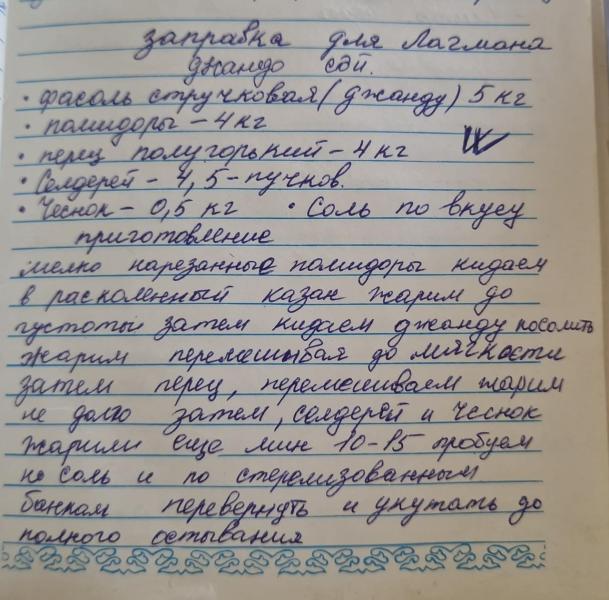 заправка для Лагмана
джандо сай.
• фасоль стручковая (джанду) 5 кг
• помидоры – 4 кг
• перец полугорький – 4 кг
• Селдерей – 4,5 – пучков.
• Чеснок – 0,5 кг • Соль по вкусу
приготовление
мелко нарезанные помидоры кидаем
в расколенный казан жарим до
густоты затем кидаем джанду посолить
жарим перемешивая до мягкости
затем перец, перемешиваем жарим
не долго затем, селдерей и чеснок
жарили еще мин 10–15 пробуем
на соль и по стерелизованным
банкам перевернуть и укутать до
полного остывания